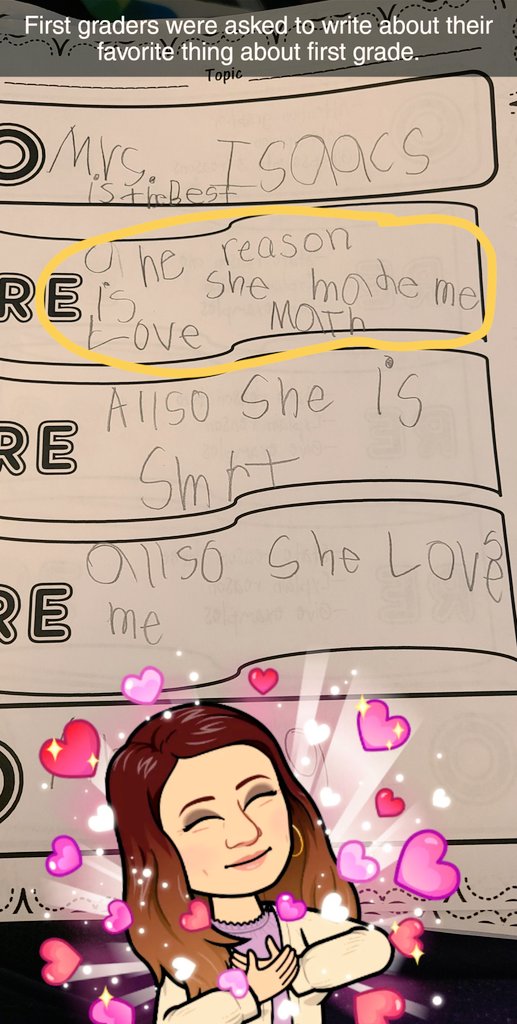 First graders were asked to write about their
favorite thing about first grade.
Topic
O Mrs. Isaacs
is the Best
The reason
RE is she made me
Love Math
Allso She is
RE Smrt
allso She Loves
RE me
O